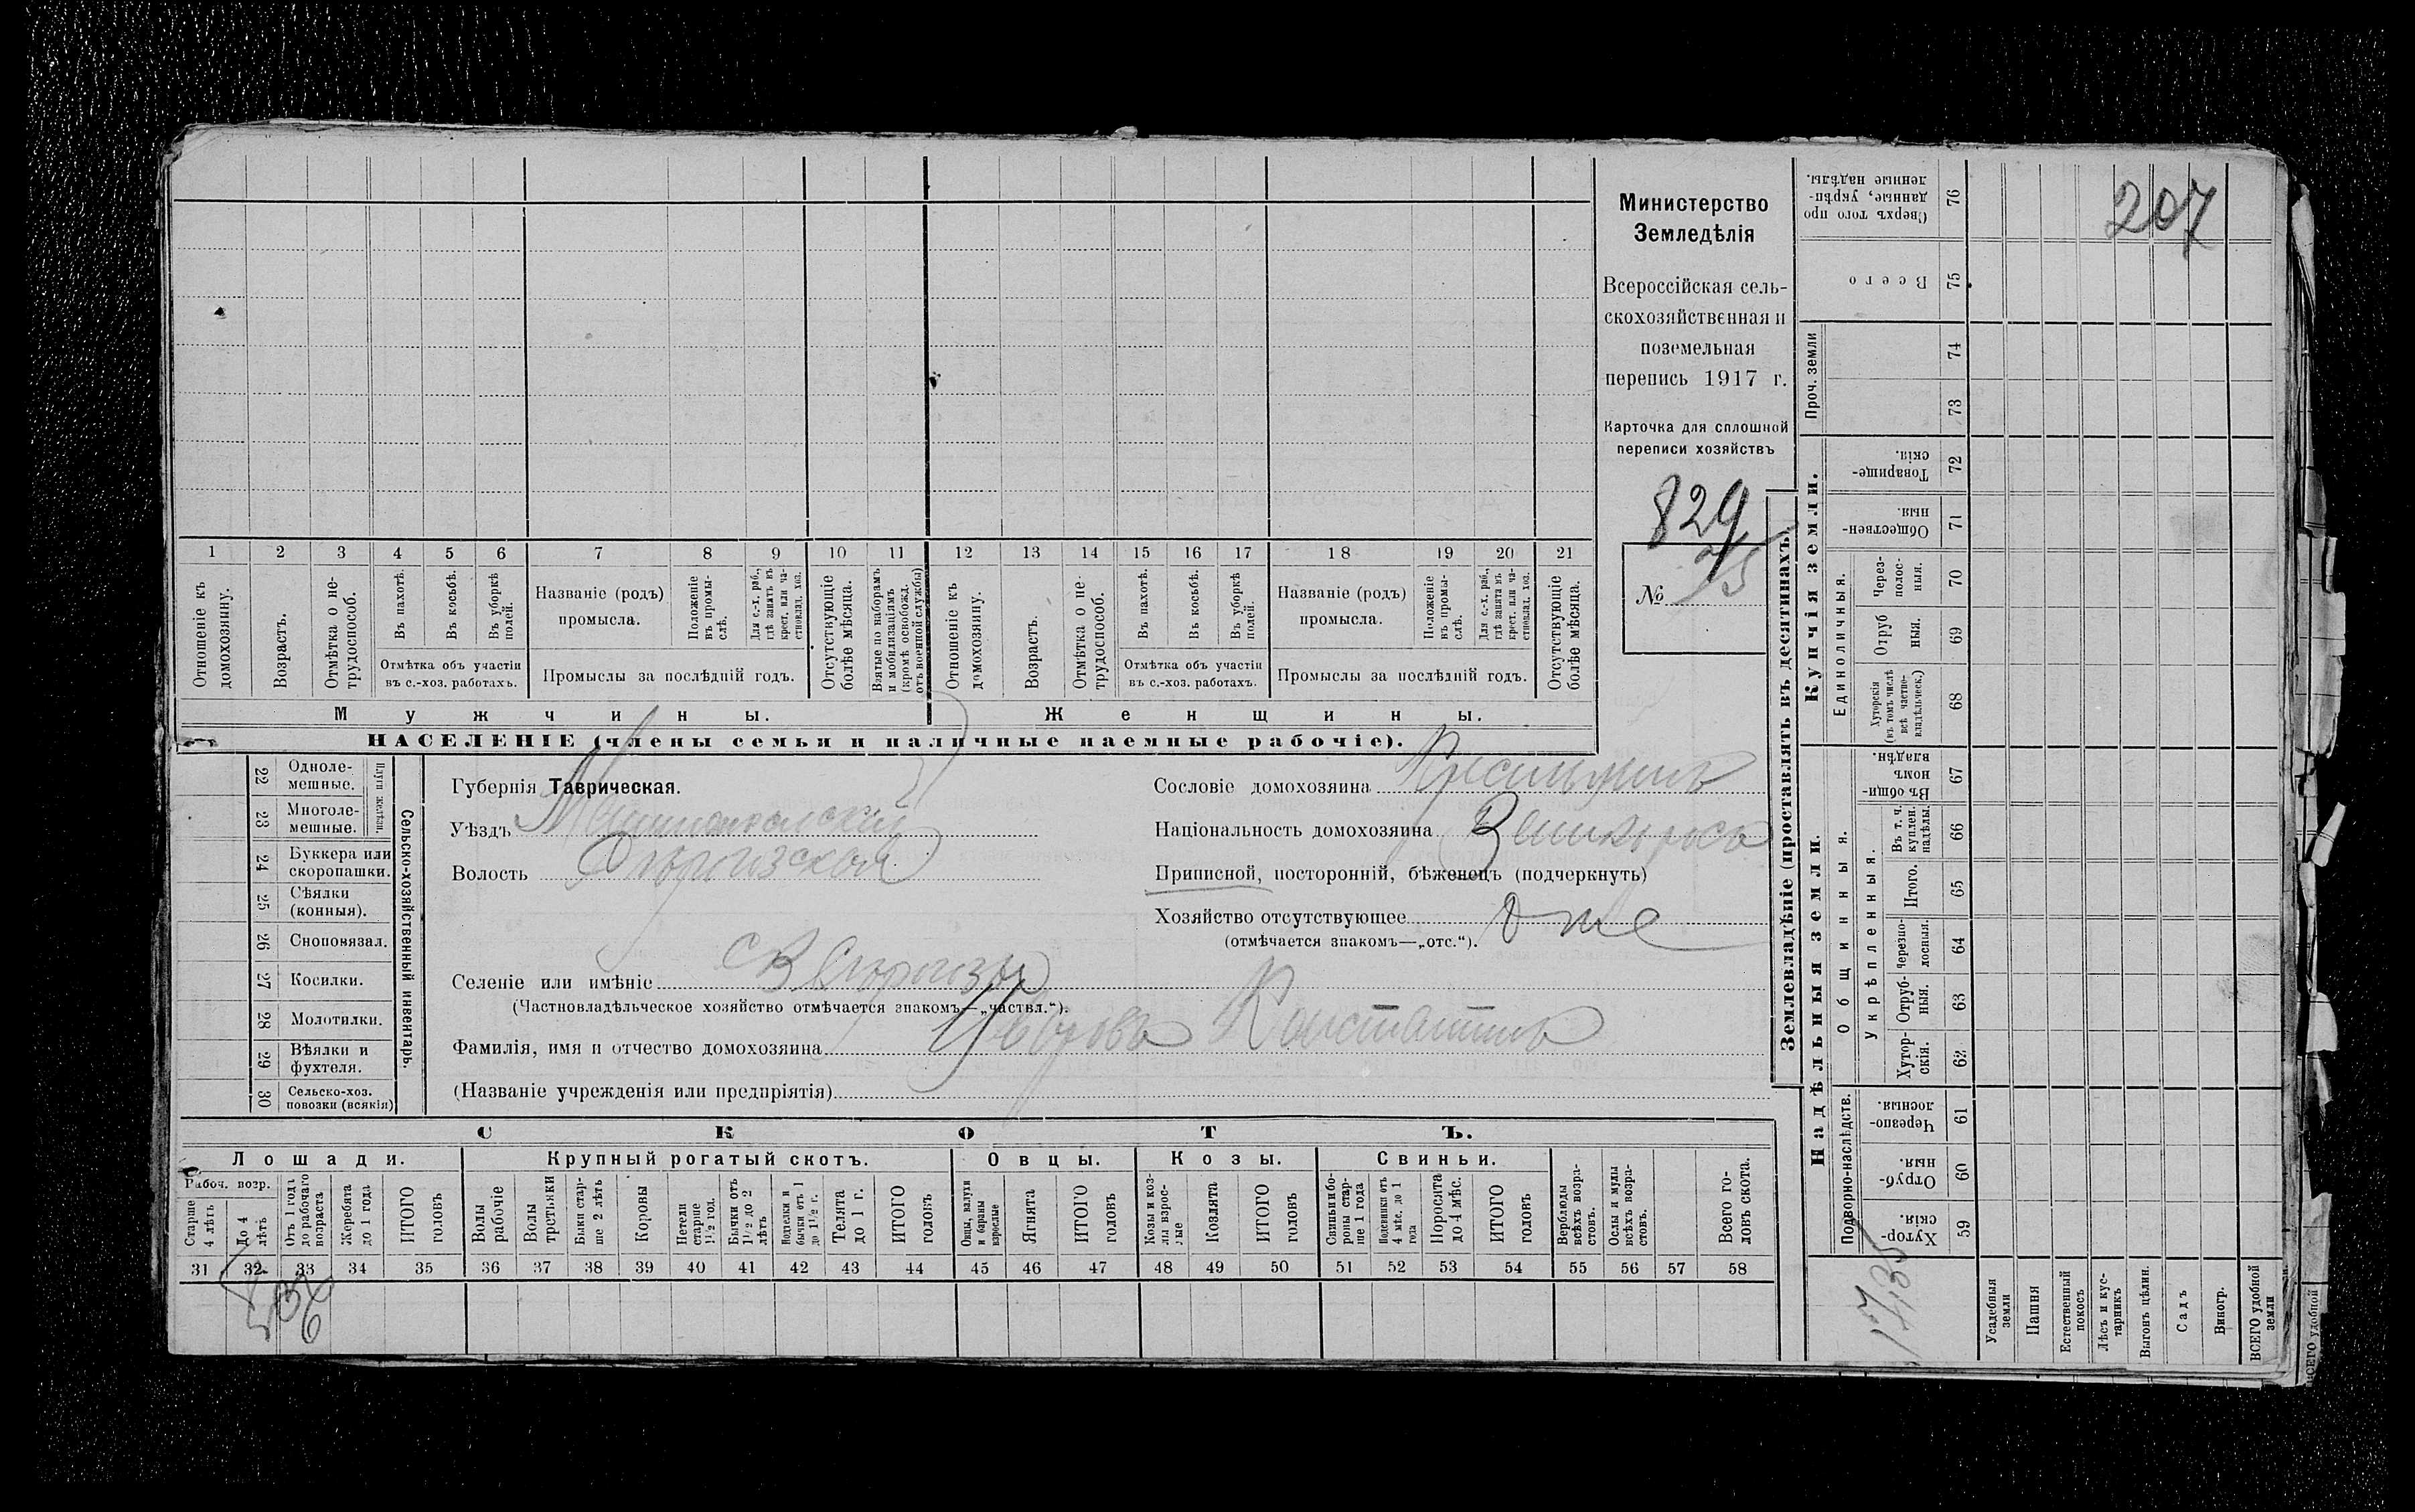 207
Министерство
Земледѣлія
Всероссійская сель-
скохозяйственная и
поземельная
перепись 1917 г.
Карточка для сплошной
переписи хозяйствъ
829
№
1 2 3 4 5 6 7 8 9 10 11 12 13 14 15 16 17 18 19 20 21
Отношеніе къ домохозяину.
Возрастъ.
Отмѣтка о не-трудоспособ.
Въ пахотѣ.
Въ косьбѣ.
Въ уборкѣ полей.
Отмѣтка объ участіи
въ с.-хоз. работахъ.
Названіе (родъ)
промысла.
Положеніе въ промы-слѣ.
Для с.-х. раб., гдѣ занятъ въ крест. или ча-стновлад. хоз.
Промыслы за послѣдній годъ.
Отсутствующіе болѣе мѣсяца.
Взятые по наборамъ и мобилизаціямъ (кромѣ освобожд. отъ военной службы)
Отношеніе къ домохозяину.
Возрастъ.
Отмѣтка о не-трудоспособ.
Въ пахотѣ.
Въ косьбѣ.
Въ уборкѣ полей.
Отмѣтка объ участіи
въ с.-хоз. работахъ.
Названіе (родъ)
промысла.
Положеніе въ промы-слѣ.
Для с.-х. раб., гдѣ занята въ крест. или ча-стновлад. хоз.
Промыслы за послѣдній годъ.
Отсутствующіе болѣе мѣсяца.
Мужчины.
Женщины.
НАСЕЛЕНІЕ (члены семьи и наличные наемные рабочіе).
22 Одноле-мешные.
23 Многоле-мешные.
Плуги желѣзн.
24 Буккера или скоропашки.
25 Сѣялки (конныя).
26 Сноповязал.
27 Косилки.
28 Молотилки.
29 Вѣялки и фухтеля.
30 Сельско-хоз. повозки (всякія)
Сельско-хозяйственный инвентарь.
Губернія Таврическая.
Уѣздъ Мелитопольскій
Волость
Селеніе или имѣніе
(Частновладѣльческое хозяйство отмѣчается знакомъ—„частвл.“).
Фамилія, имя и отчество домохозяина Константинъ
(Названіе учрежденія или предпріятія)
Сословіе домохозяина
Національность домохозяина
Приписной, посторонній, бѣженецъ (подчеркнуть)
Хозяйство отсутствующее
(отмѣчается знакомъ—„отс.“).
СКОТЪ.
Лошади.
Рабоч. возр.
Старше 4 лѣтъ
До 4 лѣтъ
Отъ 1 года до рабочаго возраста
Жеребята до 1 года
ИТОГО головъ
Крупный рогатый скотъ.
Волы рабочіе
Волы третьяки
Быки стар-ше 2 лѣтъ
Коровы
Нетели старше 1½ год.
Бычки отъ 1½ до 2 лѣтъ
Телята до 1 г.
ИТОГО головъ
Овцы.
Овцы, валухи и бараны взрослые
Ягнята
ИТОГО головъ
Козы.
Козы и коз-лы взрос-лые
Козлята
ИТОГО головъ
Свиньи.
Свиньи и бо-ровы стар-ше 1 года
Подсвинки отъ 4 мѣс. до 1 года
Поросята до 4 мѣс.
ИТОГО головъ
Верблюды всѣхъ возра-стовъ.
Ослы и мулы всѣхъ возра-стовъ.
Всего го-ловъ скота.
31 32 33 34 35 36 37 38 39 40 41 42 43 44 45 46 47 48 49 50 51 52 53 54 55 56 57 58
Землевладѣніе (проставлять въ десятинахъ)
Купчія земли.
Надѣльныя земли.
Сверхъ того про-данные, укрѣп-ленные надѣлы. 76
Всего 75
Проч. земли
74
73
Товарище-скія. 72
Обществен-ныя. 71
Единоличныя.
Через-полос-ныя. 70
Отруб-ныя. 69
Хуторскія (въ томъ числѣ всѣ частно-владѣльческ.) 68
Общинныя.
Въ общи-номъ владѣн. 67
Укрѣпленныя.
Въ т. ч. куплен. надѣлы. 66
Итого. 65
Черезпо-лосныя. 64
Отруб-ныя. 63
Хутор-скія. 62
Подворно-наслѣдств.
Черезпо-лосныя. 61
Отруб-ныя. 60
Хутор-скія. 59
Усадебныя земли
Пашня
Естественный покосъ
Лѣсъ и кус-тарникъ
Выгонъ цѣлин.
Садъ
Виногр.
ВСЕГО удобной земли